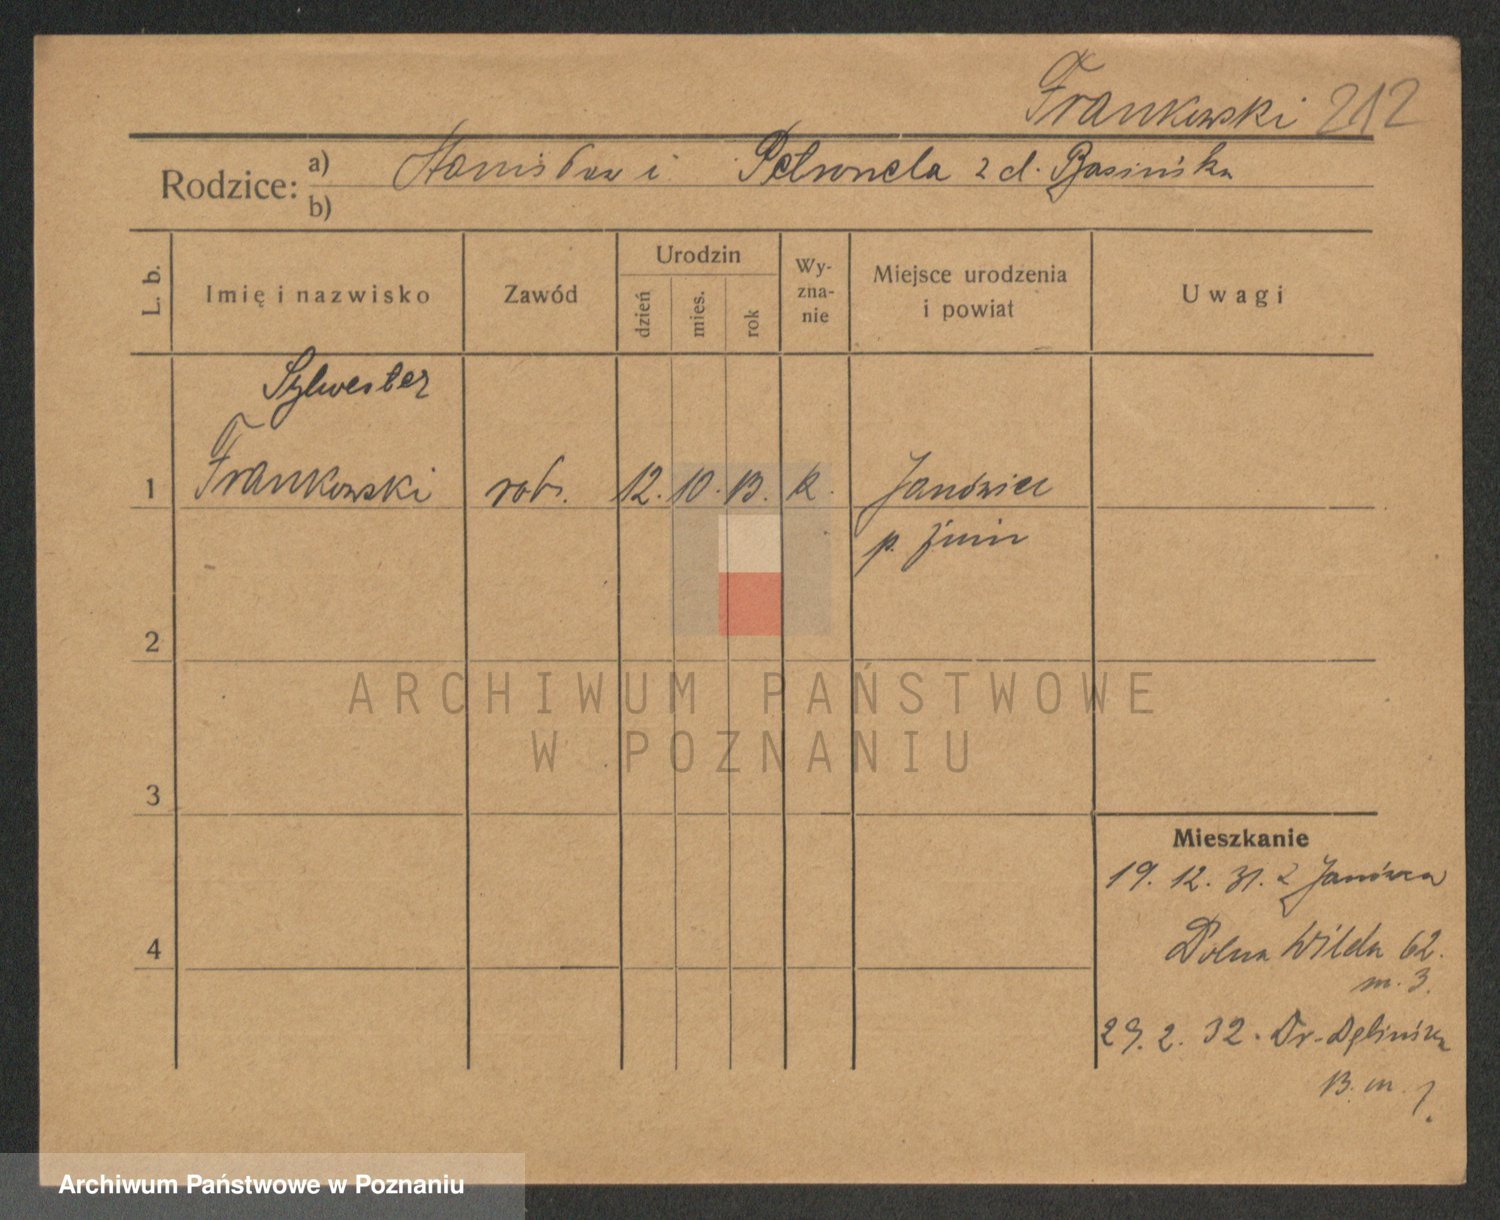 Frankowski 212
Rodzice: a) Stanisław i Petronela z d. Basińska
b)
L. b.
Imię i nazwisko
Zawód
Urodzin
dzień
mies.
rok
Wy-
zna-
nie
Miejsce urodzenia
i powiat
Uwagi
Sylwester
1 Frankowski rob. 12. 10. 13. k. Janówiec
p. Żnin
2
3
4
ARCHIWUM PAŃSTWOWE
W POZNANIU
Mieszkanie
19. 12. 31. z Janówca
Dolna Wilda 62.
m. 3.
29. 2. 32. Dr. Dębińska
13. m. 1.
Archiwum Państwowe w Poznaniu